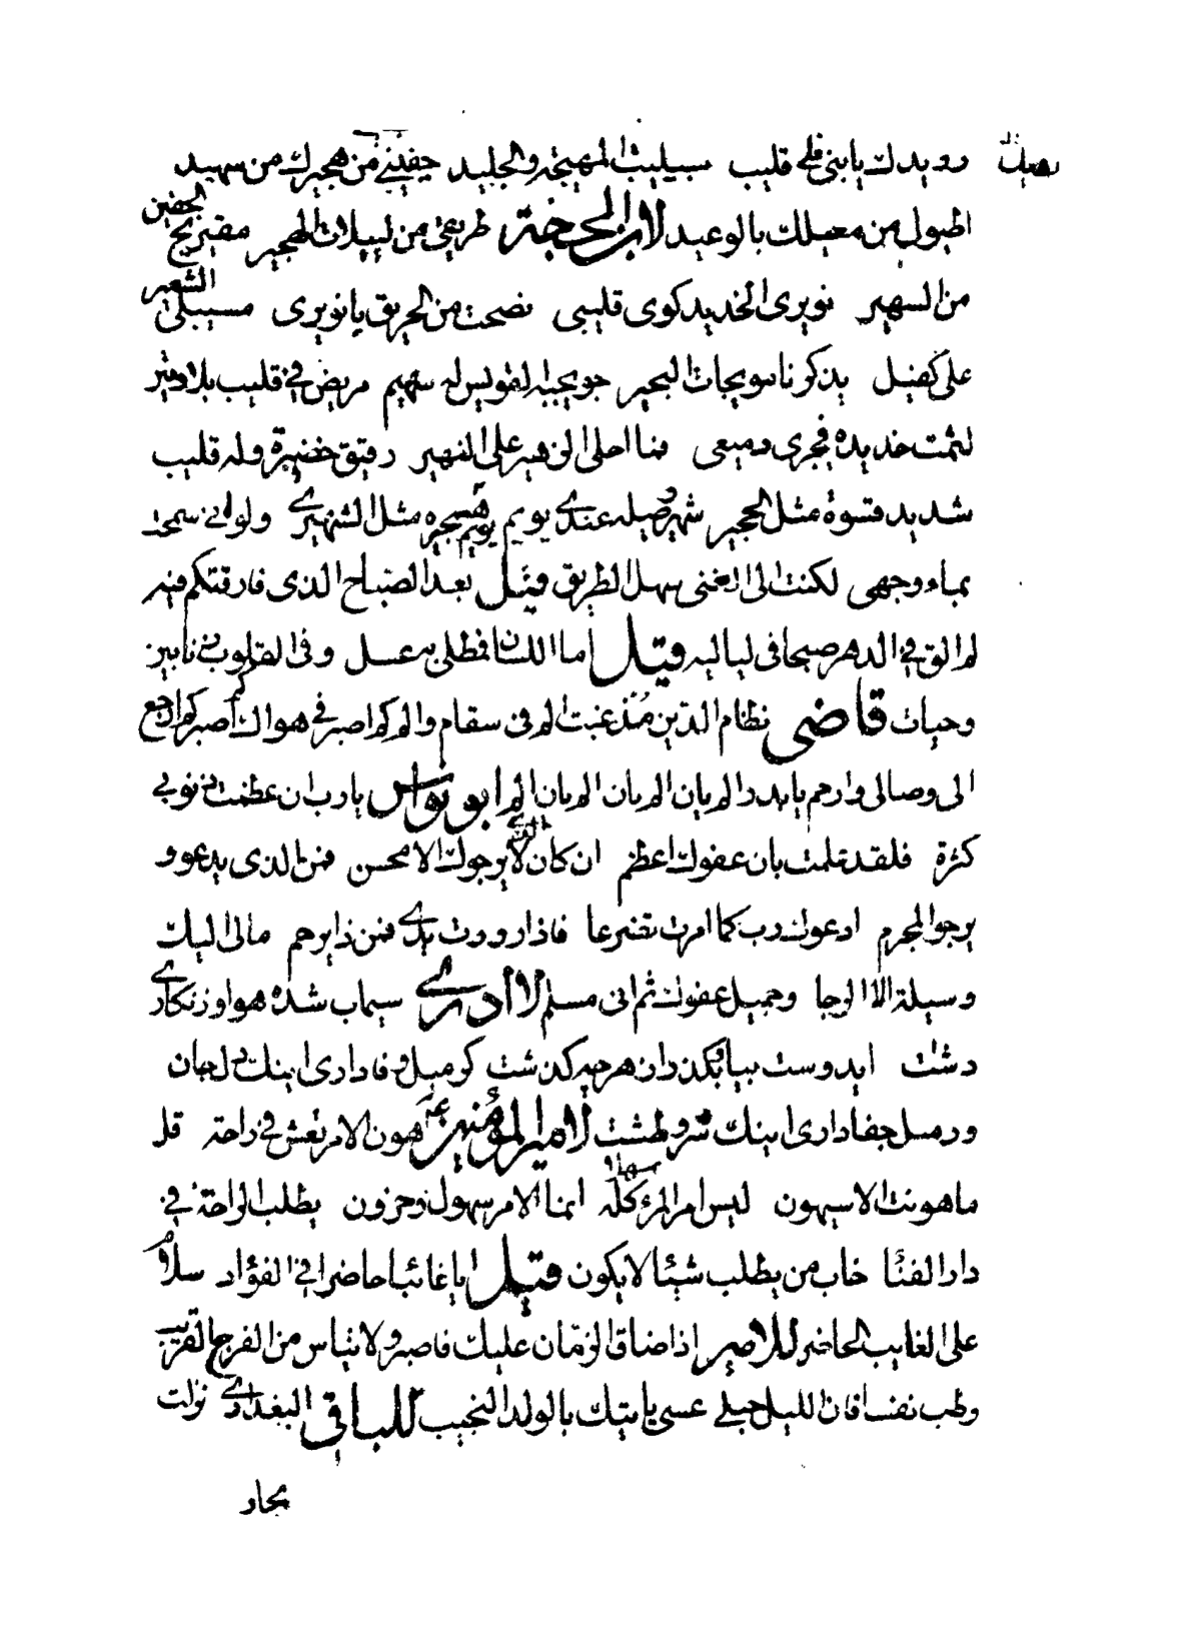 رويدك يا بني فلي قليب سبيليت المهيجة والجليد جفيني من هجيرك من سهيد
اطيول من معيلك بالوعيد لابن حجة طريفي من لييلات الهجير مقيريح الجفين
من السهير نويرى الخديد كوى قليبى فصحت من الحريق يا نويرى مسيبلى الشعير
على كفيل يذكرنا مويجات البحير حويجبه القويس له سهيم مريض في قليب بلا وتير
لثمت خديده فجرى دميعى فما احلى الزهير على النهير رقيق خضيرة وله قليب
شديد قسوة مثل الحجير شهير وصيله عندي يويم يويم هجيره مثل الشهيري ولو اني سمحت
بماء وجهى لكنت الى الغنى سهل الطريق قيل بعد الصباح الذى فارقتكم فيه
لم الق في الدهر صبحا فى لياليه قيل اما اللسان فمطلى به عسل وفى القلوب زنابير
وحيات قاضي نظام الدين مذ غبت لم فى سقام والم كم اصبر في هواك كم اصبر كم ارجع
الى وصالى وارحم يا بدر الم يان الم يان الم يان الم ابو نواس يا رب ان عظمت ذنوبي
كثرة فلقد علمت بان عفوك اعظم ان كان لا يرجوك الا محسن فمن الذى يدعو و
يرجو المجرم ادعوك رب كما امرت تضرعا فاذا رددت يدي فمن ذا يرحم مالى اليك
وسيلة الا الرجا وجميل عفوك ثم انى مسلم لا أدري سيماب شده هوا و زنكاري
دشت ايدوست بيا بكذر از هرچه كذشت كر ميل وفا دارى اينك دل وجان
ور ميل جفا دارى اينك سر وطشت لامير المؤمنين هون الامر تعش في راحة قل
ما هونت الا سيهون ليس امر المرء كله سهلا انما الامر سهول وحزون يطلب الراحة في
دار الفنا خاب من يطلب شيئا لا يكون قيل ايا غائبا حاضرا في الفؤاد سلام
على الغايب الحاضر للامير اذا ضاق الزمان عليك فاصبر ولا تياس من الفرج القريب
وطب نفسا فان الليل حبلى عسى ياتيك بالولد النجيب للباقى البغدادي نزلت
بجار